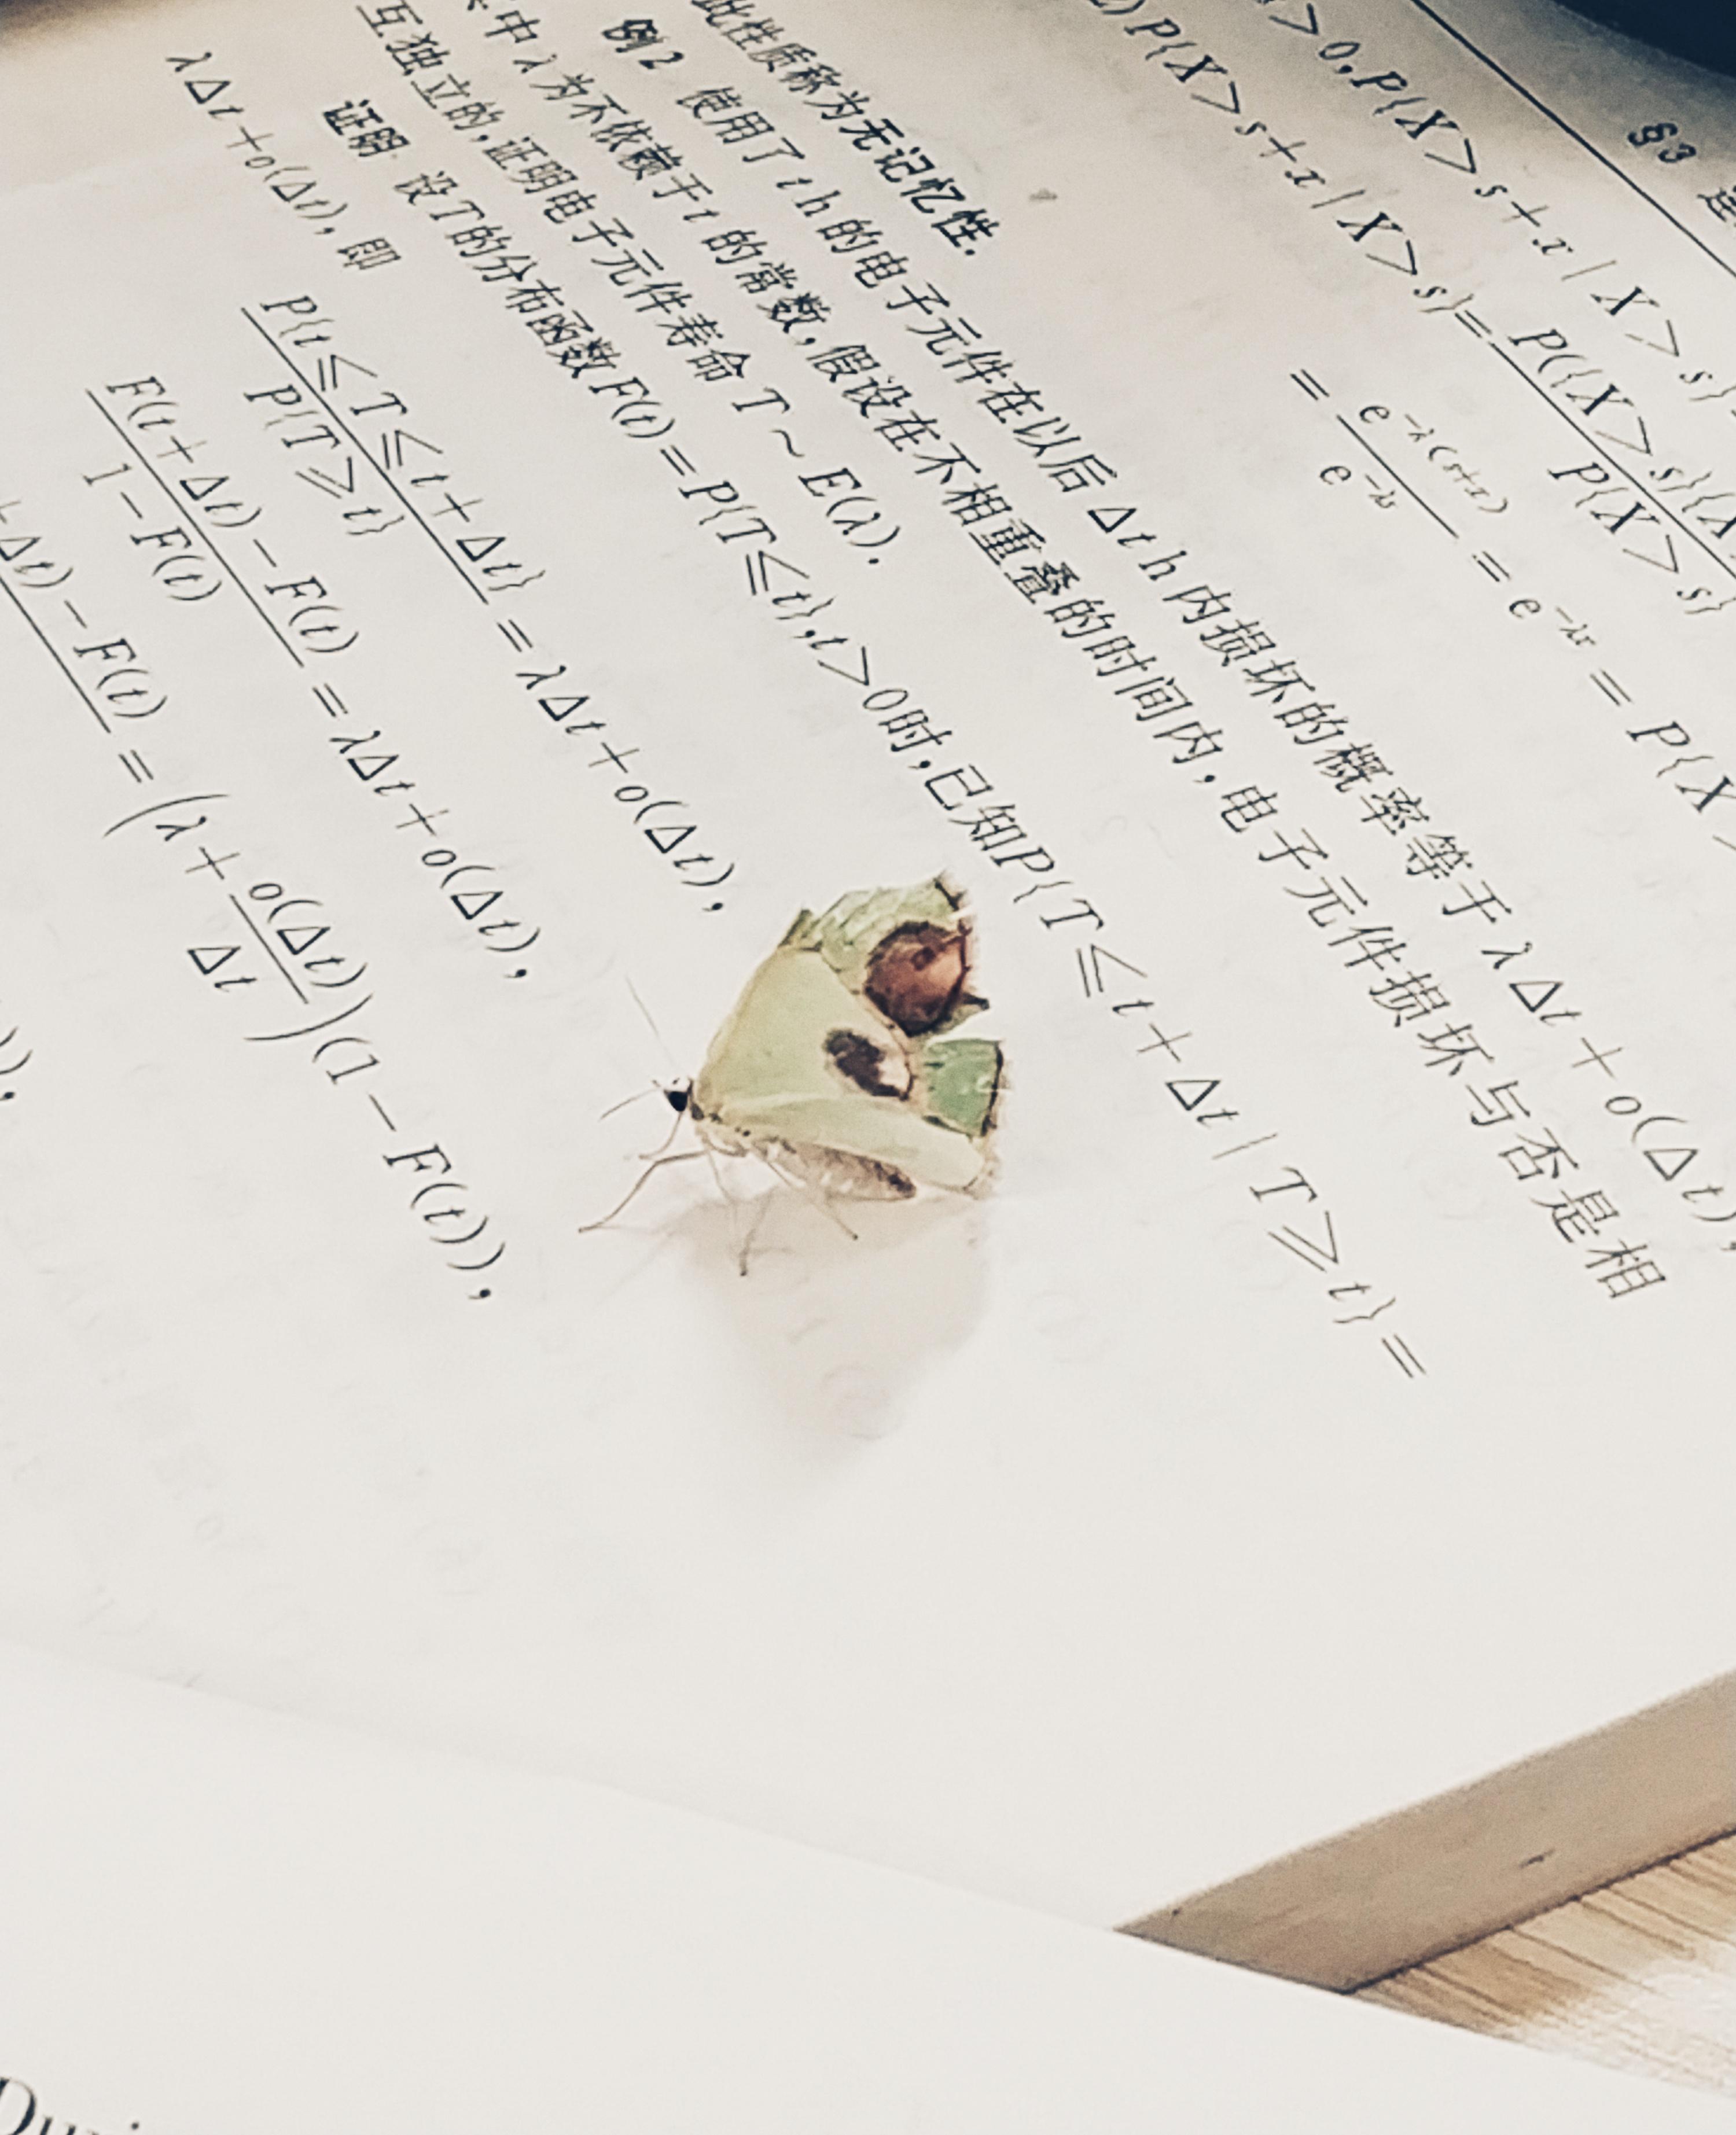 §3
>0,P{X>s+x|X>s}
P{X>s+x|X>s}=P({X>s}{X
P{X>s}
=e^{-λ(s+x)}/e^{-λs}=e^{-λx}=P{X>
此性质称为无记忆性.
例2 使用了 t h 的电子元件在以后 Δt h 内损坏的概率等于 λΔt+o(Δt),
中 λ 为不依赖于 t 的常数,假设在不相重叠的时间内,电子元件损坏与否是相
互独立的,证明电子元件寿命 T~E(λ).
证明 设 T 的分布函数 F(t)=P{T≤t},t>0时,已知P{T≤t+Δt|T≥t}=
λΔt+o(Δt),即
P{t≤T≤t+Δt}/P{T≥t}=λΔt+o(Δt),
(F(t+Δt)-F(t))/(1-F(t))=λΔt+o(Δt),
+Δt)-F(t)=(λ+o(Δt)/Δt)(1-F(t)),